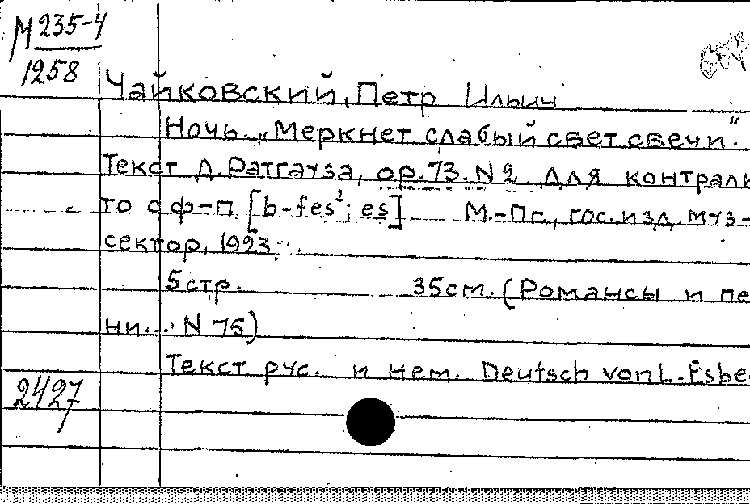 М 235-4
1258
Чайковский, Петр Ильич
Ночь. „Меркнет слабый свет свечи".
Текст Д. Ратгауза, ор. 73. N 2 для контраль
то с ф-п [b-fes²; es] М.-Пг., гос. изд. муз-
сектор, 1923.
5стр. 35см. (Романсы и пе
ни... N 75)
Текст рус. и нем. Deutsch von L. Esbe
2427